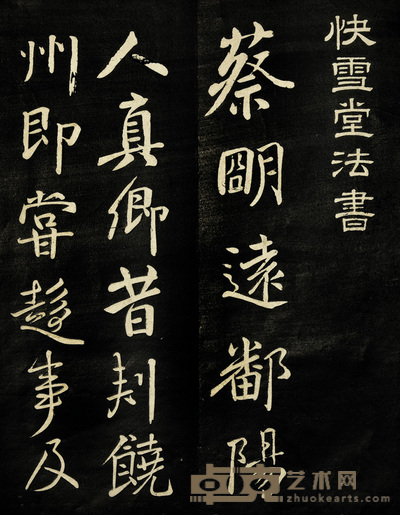 快雪堂法書
蔡明遠鄱陽
人真卿昔刾饒
州即嘗趍事及
卓克艺术网
zhuokearts.com